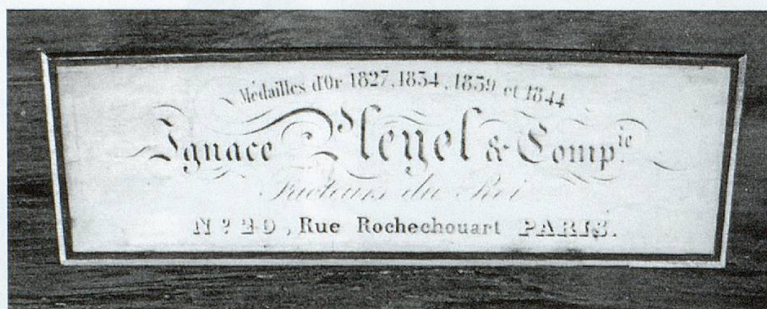 Médailles d'Or 1827, 1834, 1839 et 1844
Ignace Pleyel & Comp.ie
Facteurs du Roi
Nº 20, Rue Rochechouart PARIS.